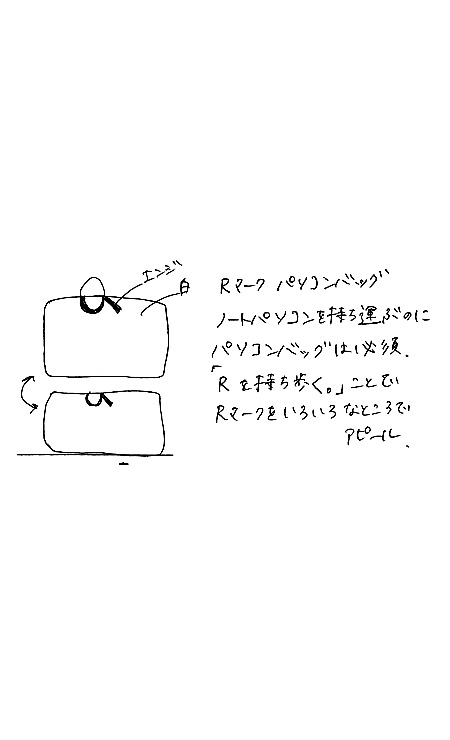 エンジ
白
Rマーク パソコンバッグ
ノートパソコンを持ち運ぶのに
パソコンバッグは必須.
「R を持ち歩く。」ことで
Rマークをいろいろなところで
アピール.